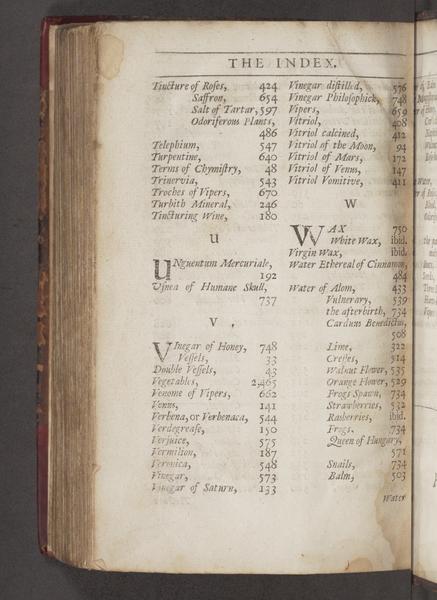 THE INDEX.
Tincture of Roses, 424
Saffron, 654
Salt of Tartar, 597
Odoriferous Plants,
486
Telephium, 547
Turpentine, 640
Terms of Chymistry, 48
Trinervia, 543
Troches of Vipers, 670
Turbith Mineral, 246
Tincturing Wine, 180
U
UNguentum Mercuriale,
192
Usnea of Humane Skull,
737
V,
VInegar of Honey, 748
Vessels, 33
Double Vessels, 43
Vegetables, 2,465
Venome of Vipers, 662
Venus, 141
Verbena, or Verbenaca, 544
Verdegrease, 150
Verjuice, 575
Vermilion, 187
Veronica, 548
Vinegar, 573
Vinegar of Saturn, 133
Vinegar distilled, 576
Vinegar Philosophick, 748
Vipers, 659
Vitriol, 408
Vitriol calcined, 412
Vitriol of the Moon, 94
Vitriol of Mars, 172
Vitriol of Venus, 147
Vitriol Vomitive, 411
W
WAX 750
White Wax, ibid.
Virgin Wax, ibid.
Water Ethereal of Cinnamon,
484
Water of Alom, 433
Vulnerary, 539
the afterbirth, 734
Carduus Benedictus,
508
Lime, 322
Cresses, 514
Walnut Flower, 535
Orange Flower, 529
Frogs Spawn, 734
Strawberries, 532
Rasberries, ibid.
Frogs, 734
Queen of Hungary,
571
Snails, 734
Balm, 503
Water